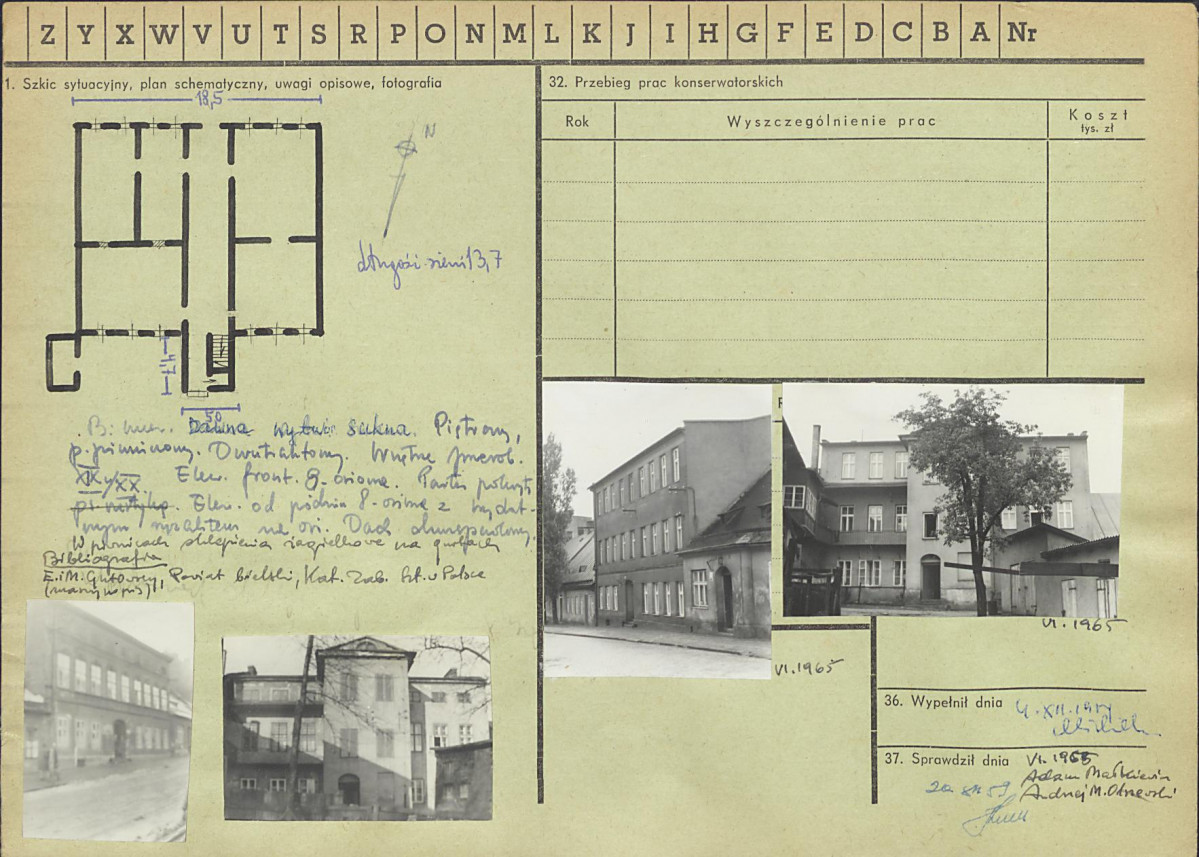 Z Y X W V U T S R P O N M L K J I H G F E D C B A Nr
1. Szkic sytuacyjny, plan schematyczny, uwagi opisowe, fotografia
18,5
N
długość sieni 13,7
4,7
50
B. mur. Dawna wytw. sukna. Piętrowy,
p. piwniczony. Dwutraktowy. Wnętrze przerob.
XIX/XX Elew. front. 9-osiowa. Parter
Elew. od podwórza 8-osiowa z wydat-
nym ryzalitem na osi. Dach dwuspadowy.
W piwnicach sklepienia żagielkowe na gurtach
Bibliografia
E. i M. Gutowscy, Powiat bielski, Kat. Zab. Szt. w Polsce
(maszynopis)
32. Przebieg prac konserwatorskich
Rok
Wyszczególnienie prac
Koszt
tys. zł
VI. 1965
VI. 1965
36. Wypełnił dnia
4. XII. 1959
37. Sprawdził dnia
VI. 1965
Adam Małkiewicz
Andrzej M. Olszewski
20 XII 59